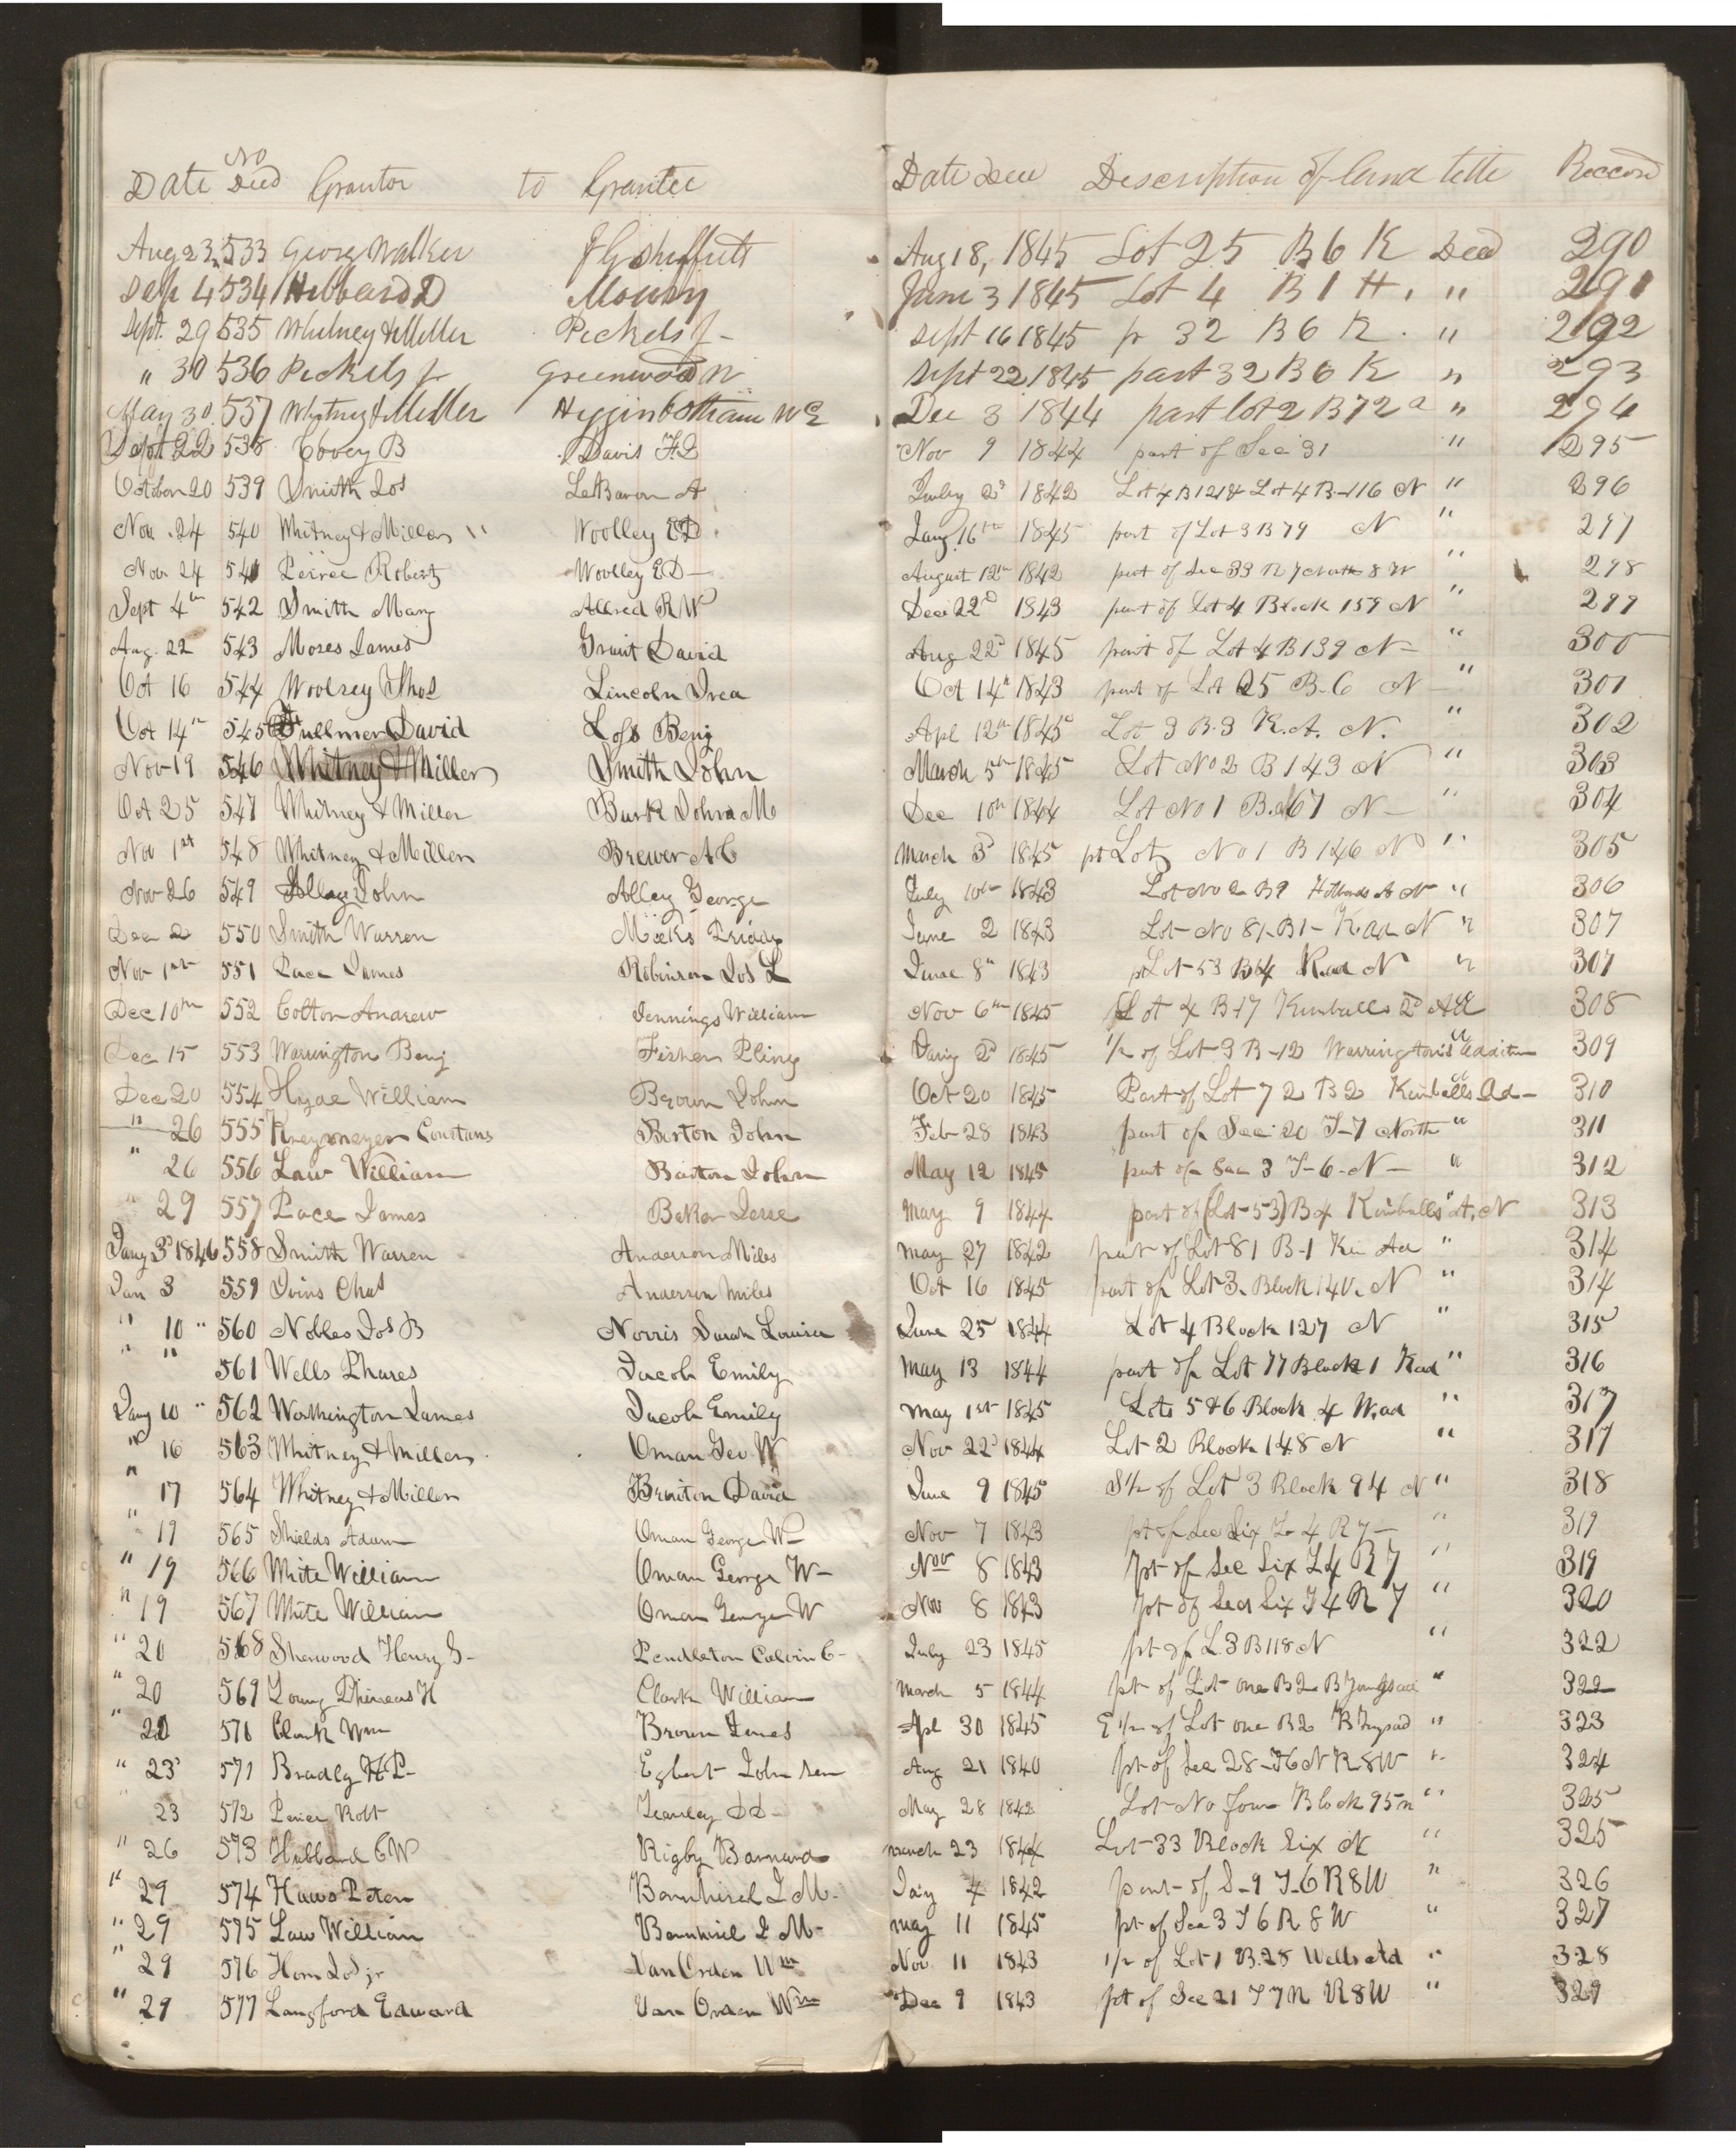 Date No Deed Grantor to Grantee Date Deed Description of land title Reccord
Aug 23, 533 Georg Walker J G Sheffrett Aug 18, 1845 Lot 25 B 6 K Deed 290
Sep 4 534 Hibbard D Mouny June 3 1845 Lot 4 B 1 H. " 291
Sept. 29 535 Whitney & Miller Pickels J - Sept 16 1845 p 32 B 6 K. " 292
" 30 536 Pickels J Greenwood W Sept 22 1845 part 32 B 6 K " 293
May 30. 537 Whitney & Miller Higginbotham W E Dec 3 1844 part lot 2 B 72 a " 294
Sept 22 538 Covey B Davis F. L Nov 9 1844 part of Sec 31 " 295
October 20 539 Smith Jos LeBaron A July 2d 1842 Lot 4 B 121 & Lot 4 B-116 N " 296
Nov. 24 540 Whitney & Miller " Woolley E D Jany. 16th 1845 part of Lot 3 B 79 N " 297
Nov 24 541 Peirce Robert Woolley E D - August 12th 1842 part of Sec 33 R 7 North 8 W " 298
Sept 4th 542 Smith Mary Allred R W Dec 22d 1843 part of Lot 4 Block 159 N " 299
Aug. 22 543 Moses James Grant David Aug 22d 1845 part of Lot 4 B 139 N - " 300
Oct 16 544 Woolsey Thos Lincoln Irea Oct 14th 1843 part of Lot 25 B-6 N - " 301
Oct 14th 545 Fullmer David Loss Benj Apl 12th 1845 Lot 3 B.3 K.A. N. " 302
Nov 19 546 Whitney & Miller Smith John March 5th 1845 Lot No 2 B 143 N " 303
Oct 25 547 Whitney & Miller Burk John M Dec 10th 1844 Lot No 1 B. 67 N - " 304
Nov 1st 548 Whitney & Miller Brewer A C March 3d 1845 pt Lot No 1 B 146 N " 305
Nov 26 549 Alley John Alley George July 10th 1843 Lot No 2 B9 Hibbards A N " 306
Dec 2 550 Smith Warren Meeks Priddy June 2 1843 Lot No 81-B1- K ad N " 307
Nov 1st 551 Pace James Robinson Jos L June 8th 1843 pt Lot 53 B 4 K. ad N " 307
Dec 10th 552 Colton Andrew Jennings William Nov 6th 1845 Lot 4 B 17 Kimballs 2d Ad 308
Dec 15 553 Warrington Benj Fisher Pliny Jany 2d 1845 1/2 of Lot 3 B-12 Warrington's Addition " 309
Dec 20 554 Hyde William Brown John Oct 20 1845 Part of Lot 72 B 2 Kimballs Ad - " 310
" 26 555 Kreymeyer Constans Berton John Feb 28 1843 part of Sec 20 T-7 North " 311
" 26 556 Law William Barton John May 12 1845 part of Sec 3 T-6-N - " 312
" 29 557 Pace James Baker Jesse May 9 1844 part of (Lot-53) B 4 Kimballs A, N " 313
Jany 3d 1846 558 Smith Warren Anderson Miles May 27 1842 part of Lot 81 B-1 Kim Ad " 314
Jan 3 559 Ivins Chas Anderson Miles Oct 16 1845 part of Lot 3. Block 140. N " 314
" 10 " 560 Nobles Jos B Norris Sarah Louisa June 25 1844 Lot 4 Block 127 N " 315
" " 561 Wells Phares Jacob Emily May 13 1844 part of Lot 77 Block 1 K ad " 316
Jany 10 " 562 Worthington James Jacob Emily May 1st 1845 Lots 5 & 6 Block 4 W. ad " 317
" 16 563 Whitney & Miller Oman Geo W Nov 22d 1844 Lot 2 Block 148 N " 317
" 17 564 Whitney & Miller Brinton David June 9 1845 S 1/2 of Lot 3 Block 94 N " 318
" 19 565 Shields Adam Oman George W - Nov 7 1843 pt of Sec Six T- 4 R 7 - " 319
" 19 566 White William Oman George W - Nov 8 1843 pt of Sec Six T 4 R 7 " 319
" 19 567 White William Oman George W Nov 8 1843 pt of Sec Six T 4 R 7 " 320
" 20 568 Sherwood Henry G - Pendleton Calvin C - July 23 1845 pt of L 3 B 118 N " 322
" 20 569 Young Phineas H Clark William March 5 1844 pt of Lot one B2 B Youngs ad " 322
" 20 570 Clark Wm Brown James Apl 30 1845 E 1/2 of Lot one B2 B Yngs ad " 323
" 23d 571 Bradly H P - Egbert John sen Aug 21 1840 pt of Sec 28-T6 N R 8 W " 324
" 23 572 Peirce Robt Yearsley D D - May 28 1842 Lot No four Block 95 N " 325
" 26 573 Hubbard C W Rigby Barnard March 23 1844 Lot 33 Block Six N " 325
" 29 574 Haws Peter Bernhisel J M. Jany 4 1842 part of S-9 T-6 R 8 W " 326
" 29 575 Law William Bernhisel J M - May 11 1845 pt of Sec 3 T 6 R 8 W " 327
" 29 576 Horn Jos jr Van Orden Wm Nov 11 1843 1/2 of Lot 1 B. 28 Wells Ad " 328
" 29 577 Langford Edward Van Orden Wm Dec 9 1843 pt of Sec 21 T 7 N R 8 W " 329